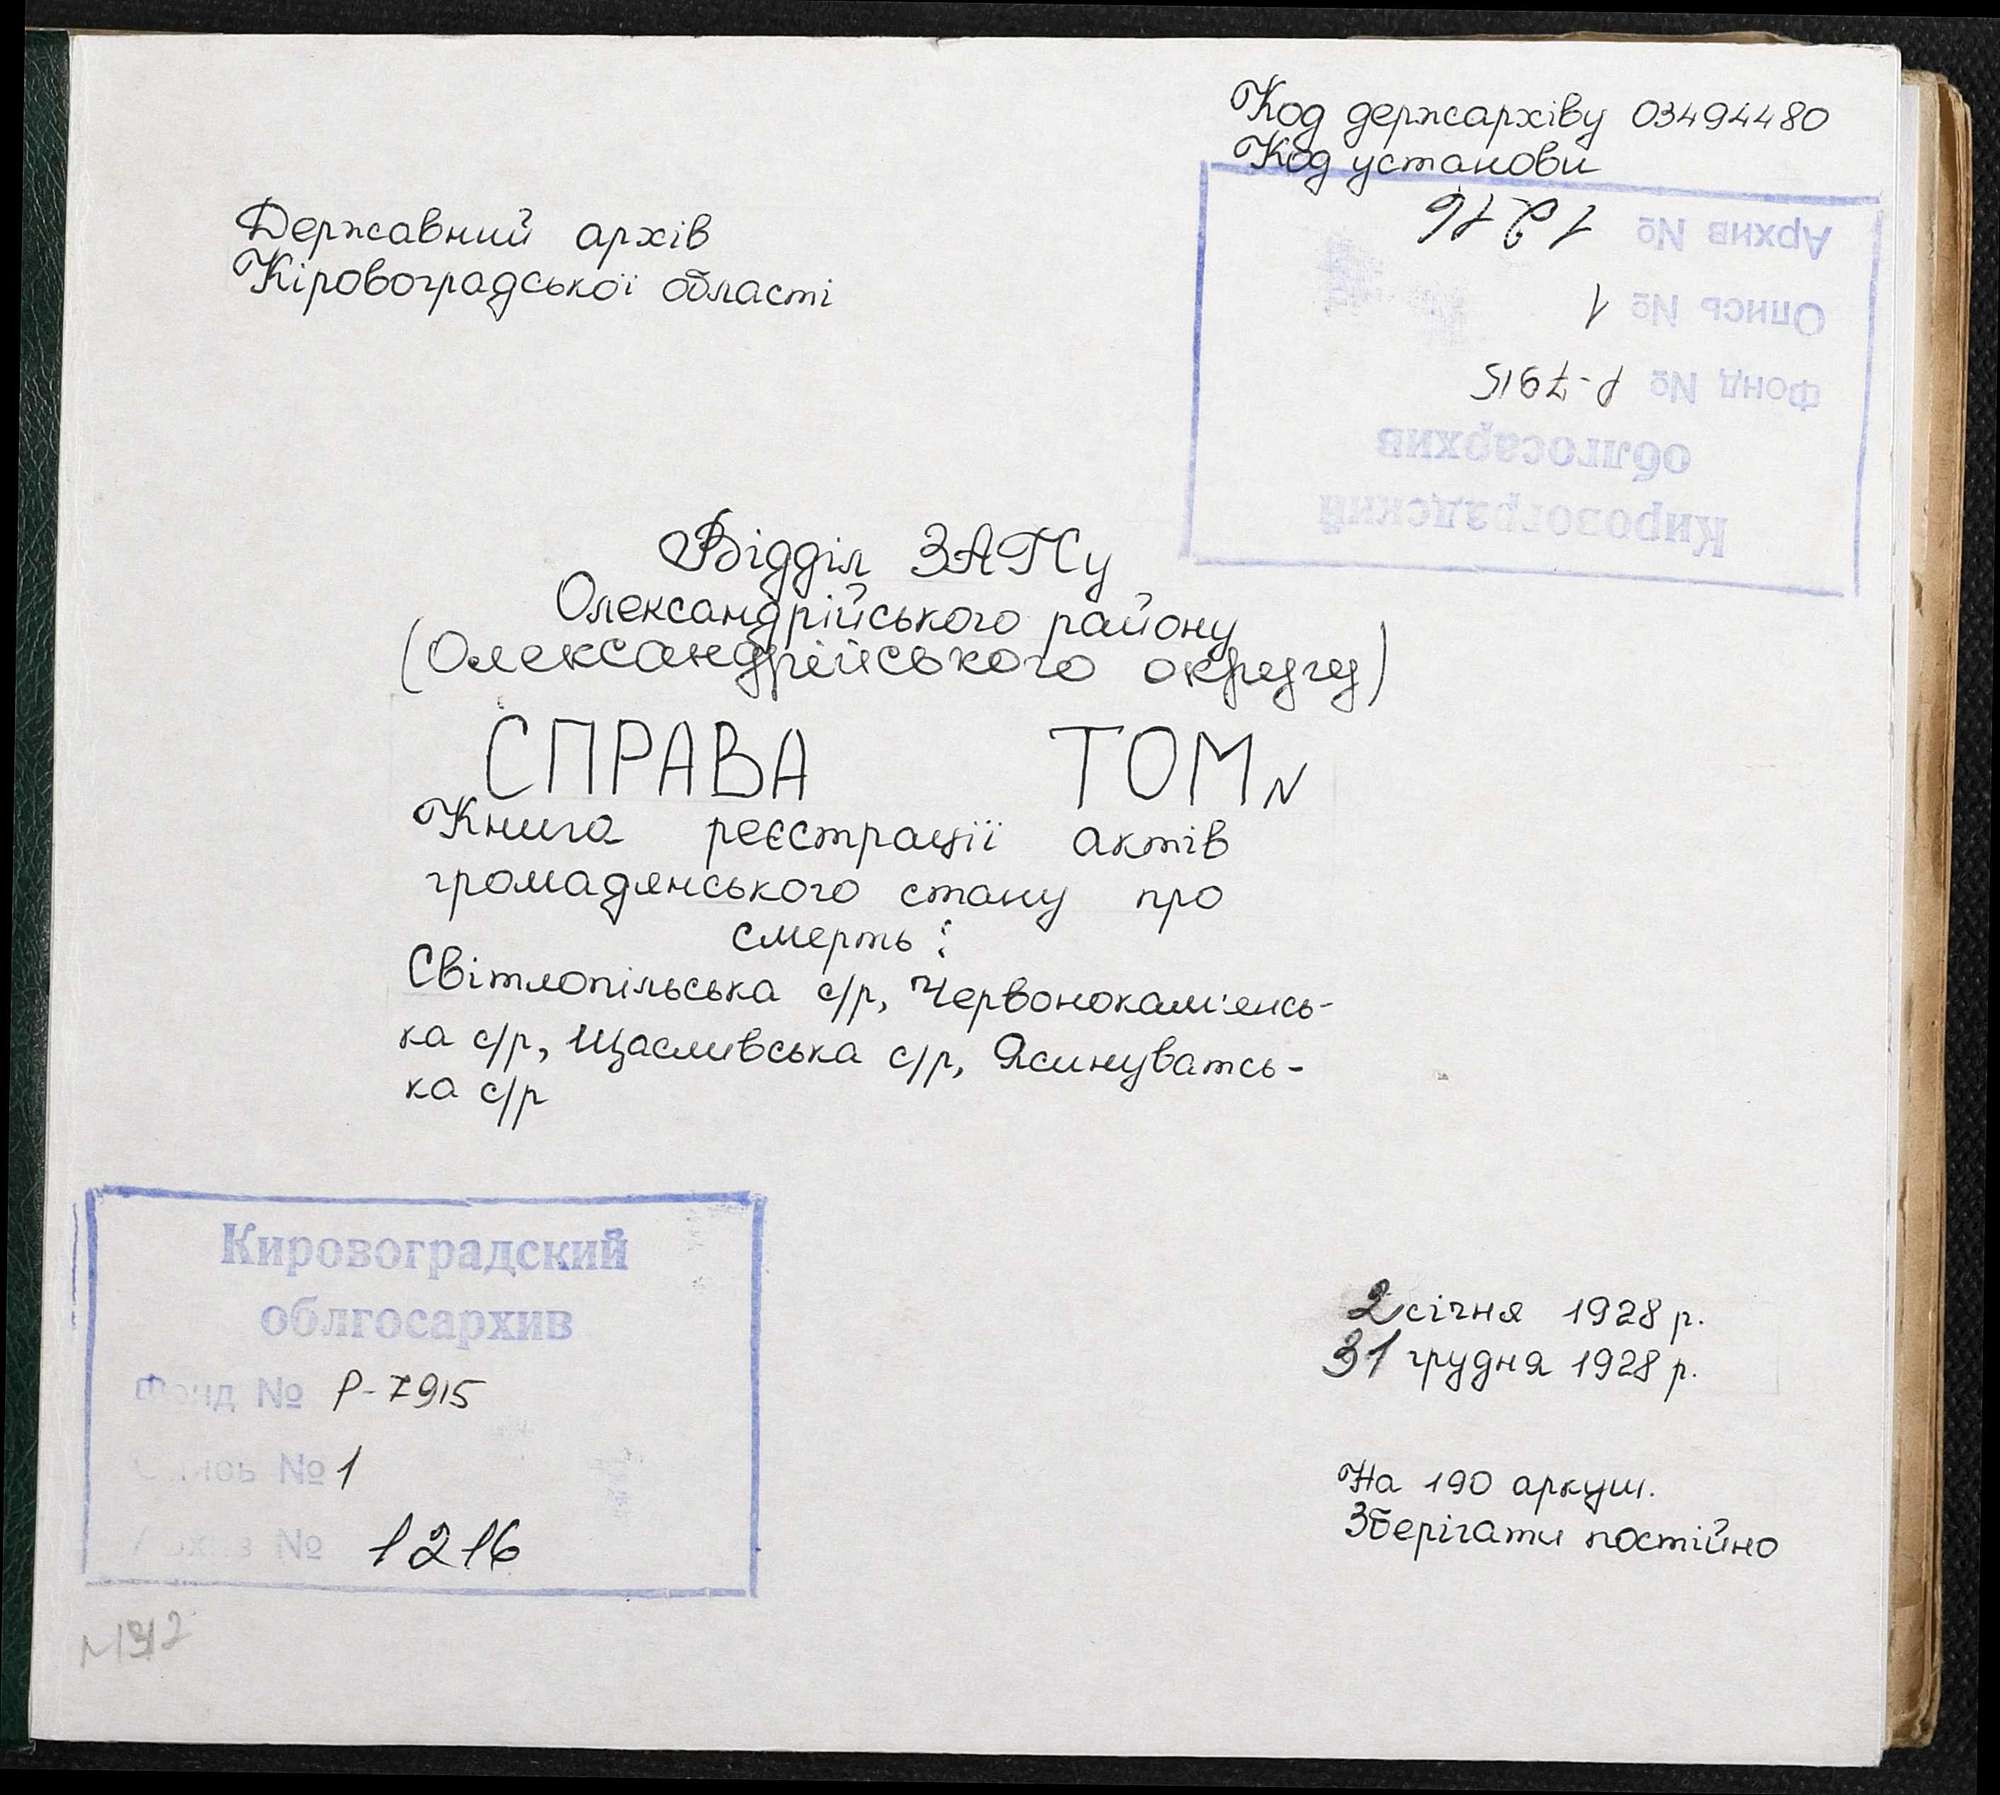 Код держархіву 03494480
Код установи
Державний архів
Кіровоградської області
Кировоградский
облгосархив
Фонд № Р-7915
Опись № 1
Архив № 1216
Відділ ЗАГСу
Олександрійського району
(Олександрійського округу)
СПРАВА ТОМ N
Книга реєстрації актів
громадянського стану про
смерть:
Світлопільська с/р, Червонокам'янсь-
ка с/р, Щасливська с/р, Ясинуватсь-
ка с/р
Кировоградский
облгосархив
Фонд № Р-7915
Опись № 1
Архив № 1216
2 січня 1928 р.
31 грудня 1928 р.
На 190 аркуш.
Зберігати постійно